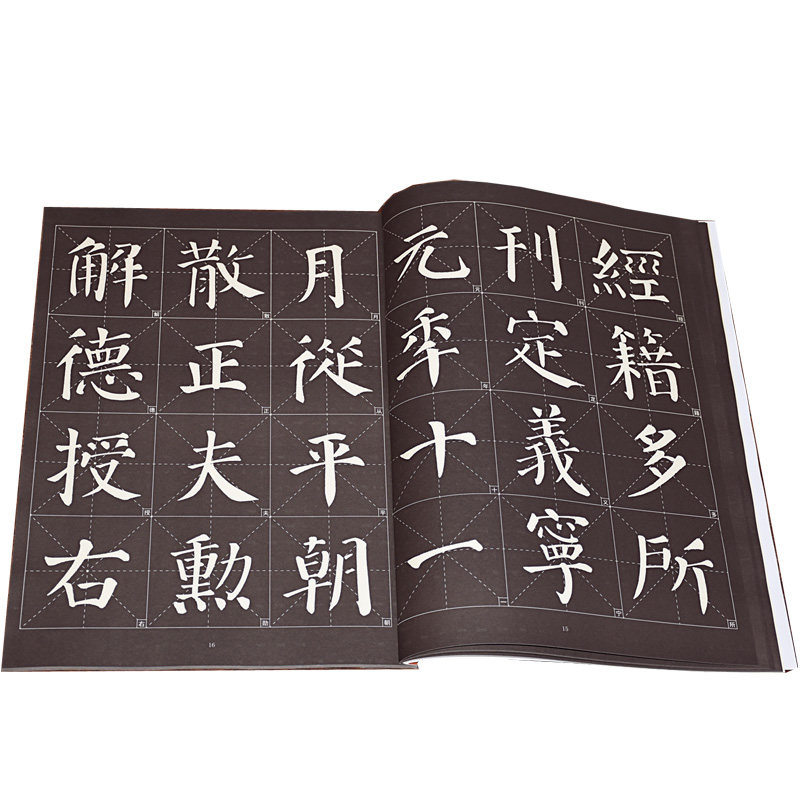 經籍多所
刊定義寧
元年十一
15
月從平朝
散正夫勳
解德授右
16